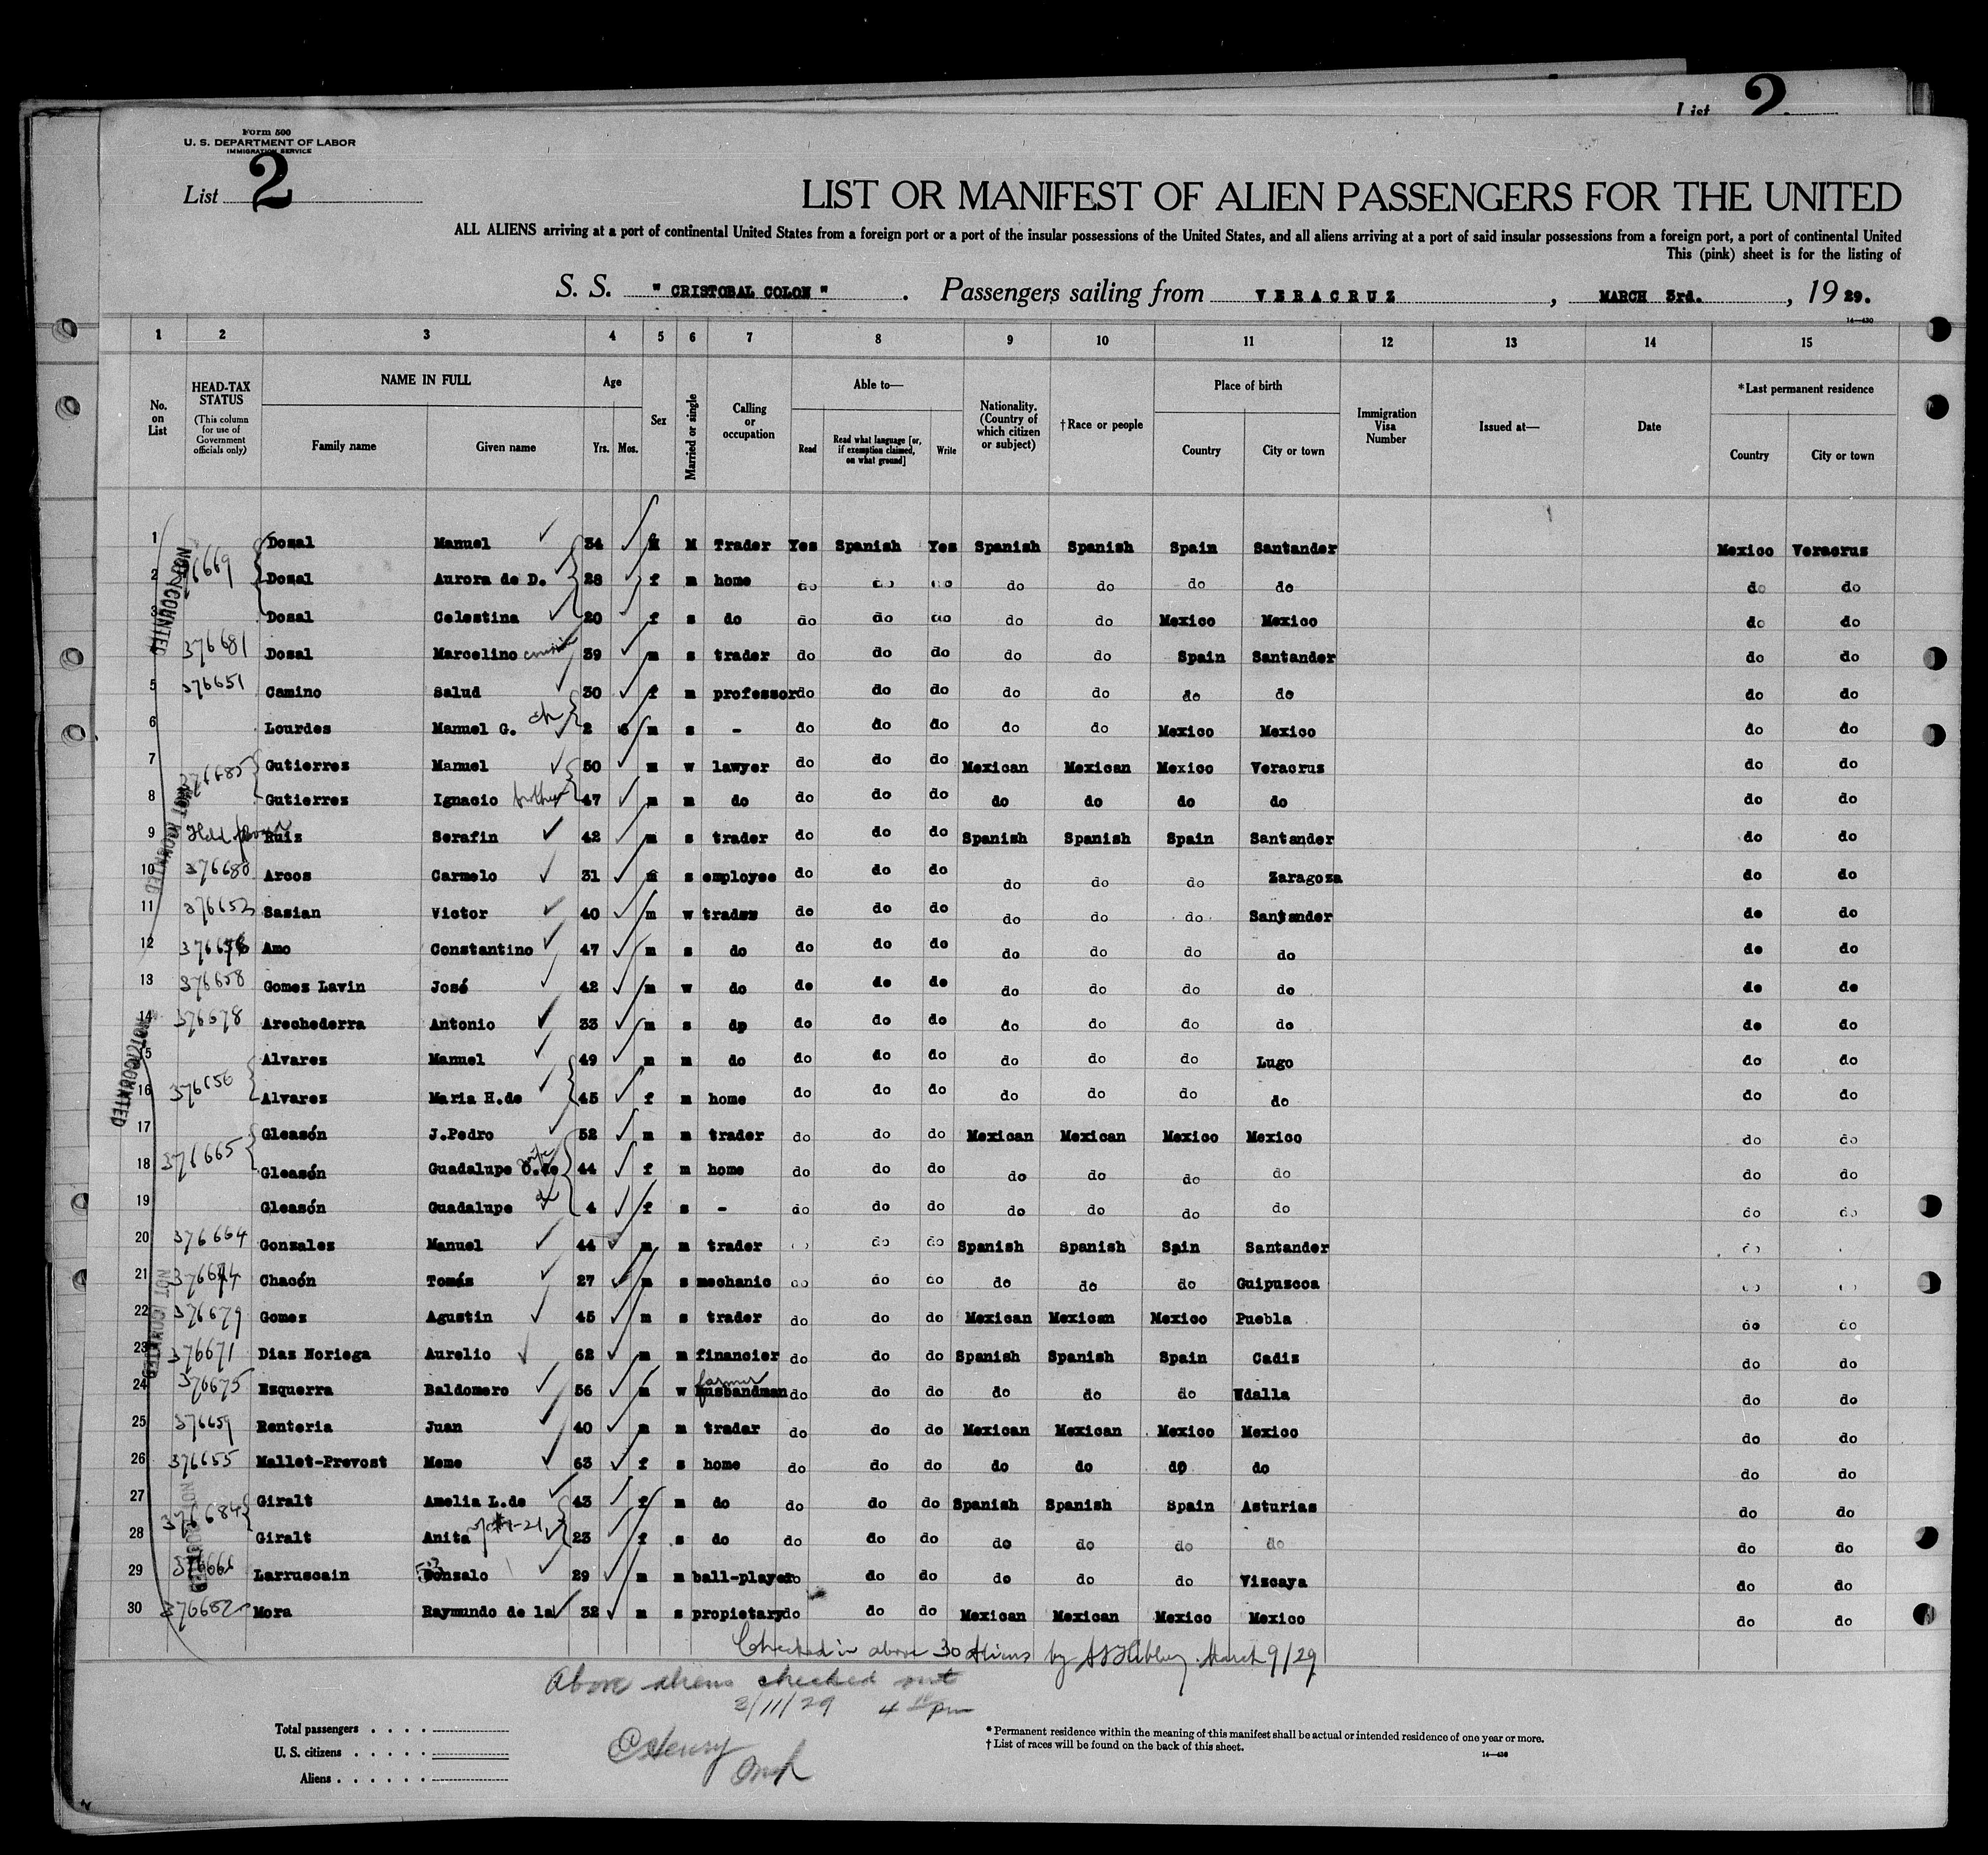 List 2
Form 500
U. S. DEPARTMENT OF LABOR
IMMIGRATION SERVICE
List 2
LIST OR MANIFEST OF ALIEN PASSENGERS FOR THE UNITED
ALL ALIENS arriving at a port of continental United States from a foreign port or a port of the insular possessions of the United States, and all aliens arriving at a port of said insular possessions from a foreign port, a port of continental United
This (pink) sheet is for the listing of
S. S. " CRISTOBAL COLON " . Passengers sailing from VERACRUZ , MARCH 3rd. , 19 29.
14—430
1 2 3 4 5 6 7 8 9 10 11 12 13 14 15
No. on List
HEAD-TAX STATUS (This column for use of Government officials only)
NAME IN FULL Family name Given name
Age Yrs. Mos.
Sex
Married or single
Calling or occupation
Able to— Read Read what language [or, if exemption claimed, on what ground] Write
Nationality. (Country of which citizen or subject)
†Race or people
Place of birth Country City or town
Immigration Visa Number
Issued at—
Date
*Last permanent residence Country City or town
1 Dosal Manuel 34 M M Trader Yes Spanish Yes Spanish Spanish Spain Santander Mexico Veracruz
2 Dosal Aurora de D. 28 f m home do do do do do do do do do
3 Dosal Celestina 20 f s do do do do do do Mexico Mexico do do
376681 Dosal Marcelino cousin 39 m s trader do do do do do Spain Santander do do
5 376651 Camino Salud 30 f m professor do do do do do do do do do
6 Lourdes Manuel G. ch 2 6 m s - do do do do do Mexico Mexico do do
7 376685 Gutierrez Manuel 50 m w lawyer do do do Mexican Mexican Mexico Veracruz do do
8 Gutierrez Ignacio brother 47 m m do do do do do do do do do do
9 Held Ruiz Serafin 42 m s trader do do do Spanish Spanish Spain Santander do do
10 376680 Arcos Carmelo 31 m s employee do do do do do do Zaragoza do do
11 376653 Sasian Victor 40 m w trader do do do do do do Santander do do
12 Amo Constantino 47 m s do do do do do do do do do do
13 376658 Gomez Lavin José 42 m w do do do do do do do do do do
14 376678 Arechederra Antonio 33 m s do do do do do do do do do do
15 Alvarez Manuel 49 m m do do do do do do do Lugo do do
16 376656 Alvarez Maria H.de 45 f m home do do do do do do do do do
17 Gleasón J.Pedro 52 m m trader do do do Mexican Mexican Mexico Mexico do do
18 376665 Gleasón Guadalupe O.de wife 44 f m home do do do do do do do do do
19 Gleasón Guadalupe 4 f s - do do do do do do do do do
20 376664 Gonzalez Manuel 44 m m trader do do Spanish Spanish Spain Santander do
21 Chacón Tomás 27 m s mechanic do do do do do do Guipuscoa
22 376679 Gomez Agustin 45 m s trader do do do Mexican Mexican Mexico Puebla do do
23 376671 Diaz Noriega Aurelio 62 m m financier do do do Spanish Spanish Spain Cadiz do do
24 376675 Ezquerra Baldomero 56 m w farmer husbandman do do do do do do Udalla do do
25 376659 Renteria Juan 40 m m trader do do do Mexican Mexican Mexico Mexico do do
26 376655 Mallet-Prevost Meme 63 f s home do do do do do do do do do
27 Giralt Amelia L.de 43 f m do do do do Spanish Spanish Spain Asturias do do
28 376684 Giralt Anita 23 f s do do do do do do do do do do
29 Larruscain Gonzalo 29 m m ball-player do do do do do do Viscaya do do
30 376682 Mora Raymundo de la 32 m s propietary do do do Mexican Mexican Mexico Mexico do do
NOT COUNTED
NOT COUNTED
NOT COUNTED
NOT COUNTED
Checked in above 30 Aliens by March 9/29
Above aliens checked out
3/11/29 4 pm
Total passengers . . . .
U. S. citizens . . . . .
Aliens . . . . . .
* Permanent residence within the meaning of this manifest shall be actual or intended residence of one year or more.
† List of races will be found on the back of this sheet.
14—430